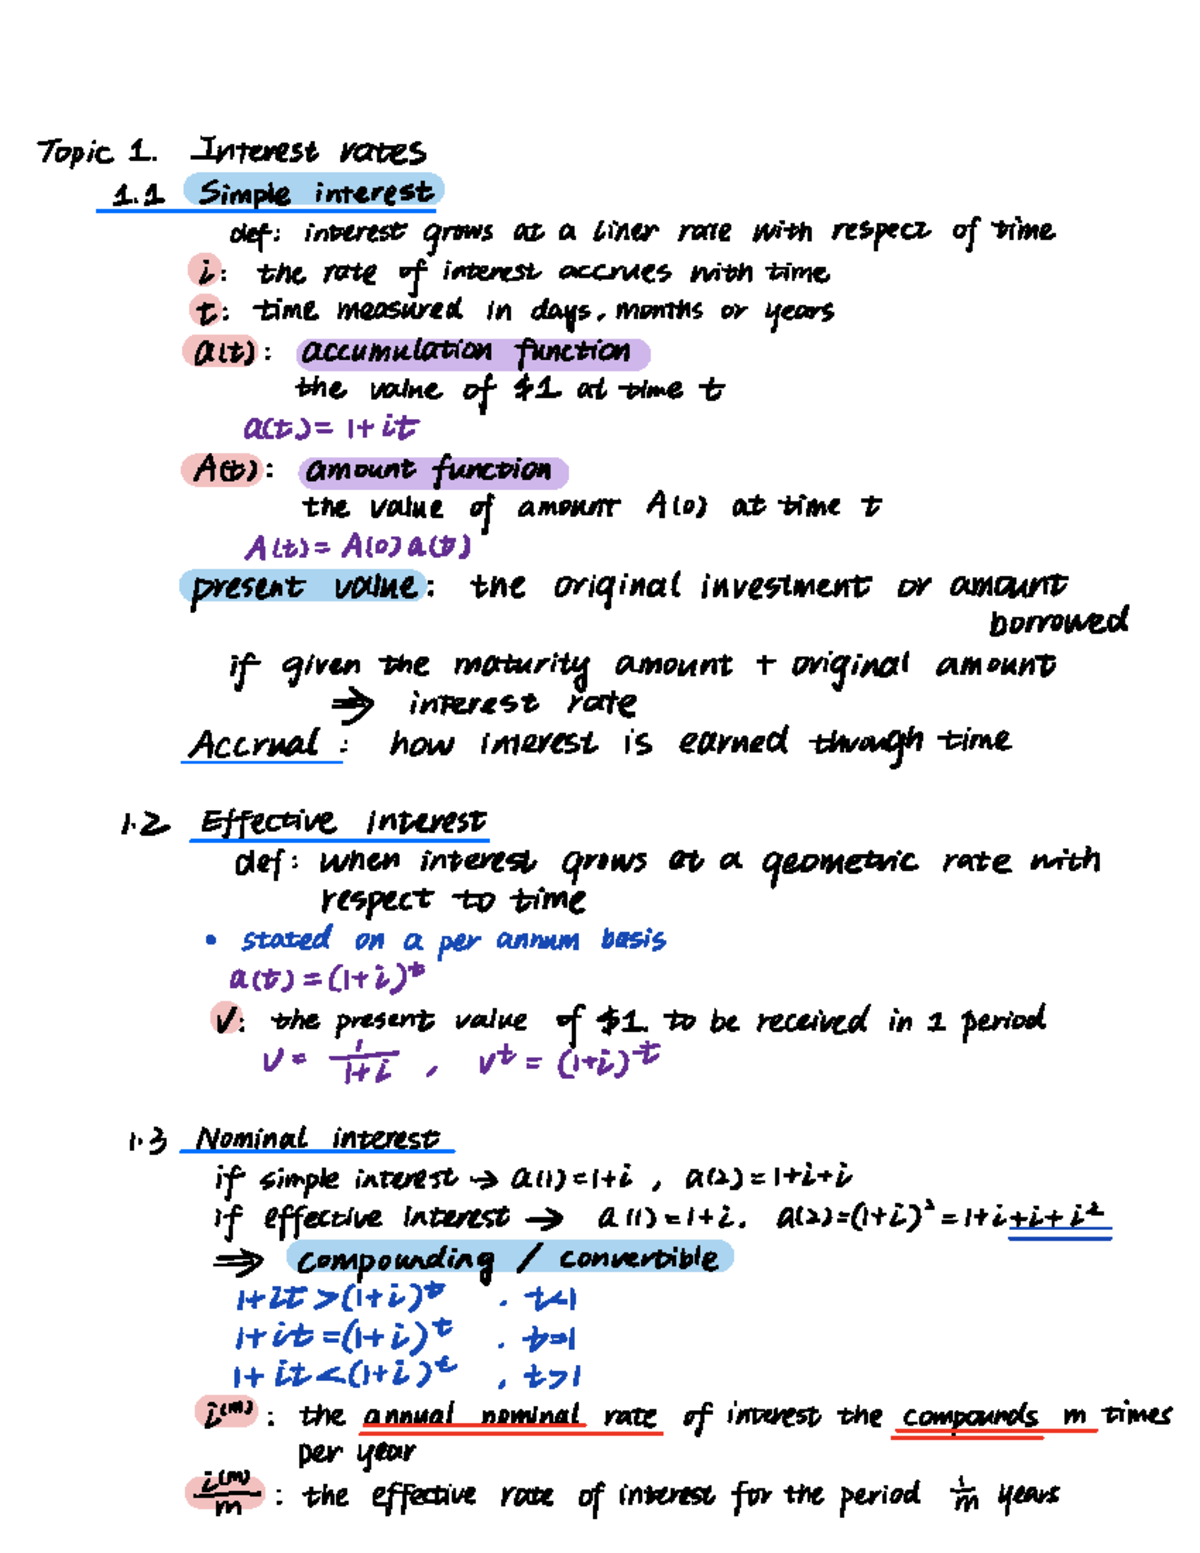 Topic 1. Interest rates
1.1 Simple interest
def: interest grows at a liner rate with respect of time
i: the rate of interest accrues with time
t: time measured in days, months or years
a(t): accumulation function
the value of $1 at time t
a(t) = 1+it
A(t): amount function
the value of amount A(0) at time t
A(t) = A(0)a(t)
present value: the original investment or amount
borrowed
if given the maturity amount + original amount
⇒ interest rate
Accrual: how interest is earned through time
1.2 Effective interest
def: when interest grows at a geometric rate with
respect to time
• stated on a per annum basis
a(t) = (1+i)^t
V: the present value of $1 to be received in 1 period
v = 1/(1+i), v^t = (1+i)^-t
1.3 Nominal interest
if simple interest → a(1)=1+i, a(2)=1+i+i
if effective interest → a(1)=1+i, a(2)=(1+i)²=1+i+i+i²
⇒ compounding / convertible
1+it>(1+i)^t, t<1
1+it=(1+i)^t, t=1
1+it<(1+i)^t, t>1
i^(m): the annual nominal rate of interest the compounds m times
per year
i^(m)/m: the effective rate of interest for the period 1/m years